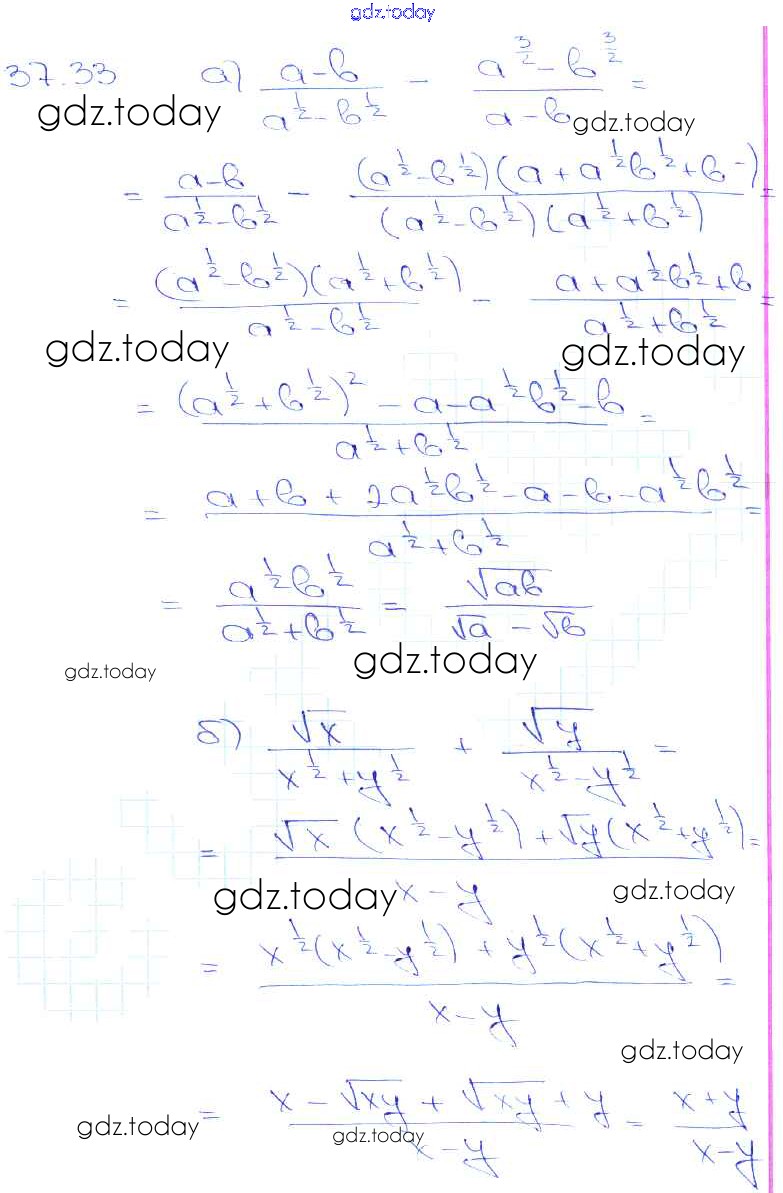 gdz.today
37.33 а) (a-b)/(a^(1/2)-b^(1/2)) - (a^(3/2)-b^(3/2))/(a-b) =
gdz.today gdz.today
= (a-b)/(a^(1/2)-b^(1/2)) - ((a^(1/2)-b^(1/2))(a+a^(1/2)b^(1/2)+b-))/((a^(1/2)-b^(1/2))(a^(1/2)+b^(1/2))) =
= ((a^(1/2)-b^(1/2))(a^(1/2)+b^(1/2)))/(a^(1/2)-b^(1/2)) - (a+a^(1/2)b^(1/2)+b)/(a^(1/2)+b^(1/2)) =
gdz.today gdz.today
= ((a^(1/2)+b^(1/2))^2-a-a^(1/2)b^(1/2)-b)/(a^(1/2)+b^(1/2)) =
= (a+b+2a^(1/2)b^(1/2)-a-b-a^(1/2)b^(1/2))/(a^(1/2)+b^(1/2)) =
= (a^(1/2)b^(1/2))/(a^(1/2)+b^(1/2)) = √(ab)/(√a-√b)
gdz.today gdz.today
б) √x/(x^(1/2)+y^(1/2)) + √y/(x^(1/2)-y^(1/2)) =
= (√x(x^(1/2)-y^(1/2))+√y(x^(1/2)+y^(1/2)))/(x-y) =
gdz.today gdz.today
= (x^(1/2)(x^(1/2)-y^(1/2))+y^(1/2)(x^(1/2)+y^(1/2)))/(x-y) =
gdz.today
= (x-√(xy)+√(xy)+y)/(x-y) = (x+y)/(x-y)
gdz.today gdz.today